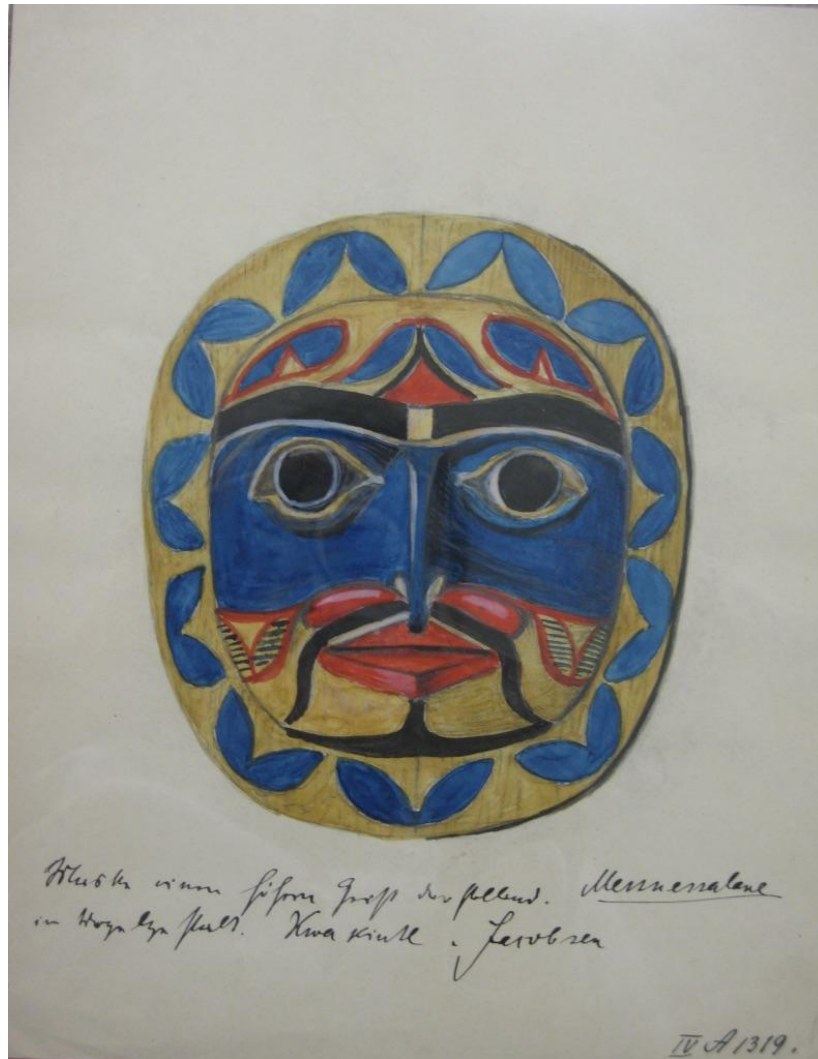 Maske einen höhern Geist darstellend. Mesmesalane
in Vogelgestalt. Kwakiutl. Jacobsen
IV A 1319.